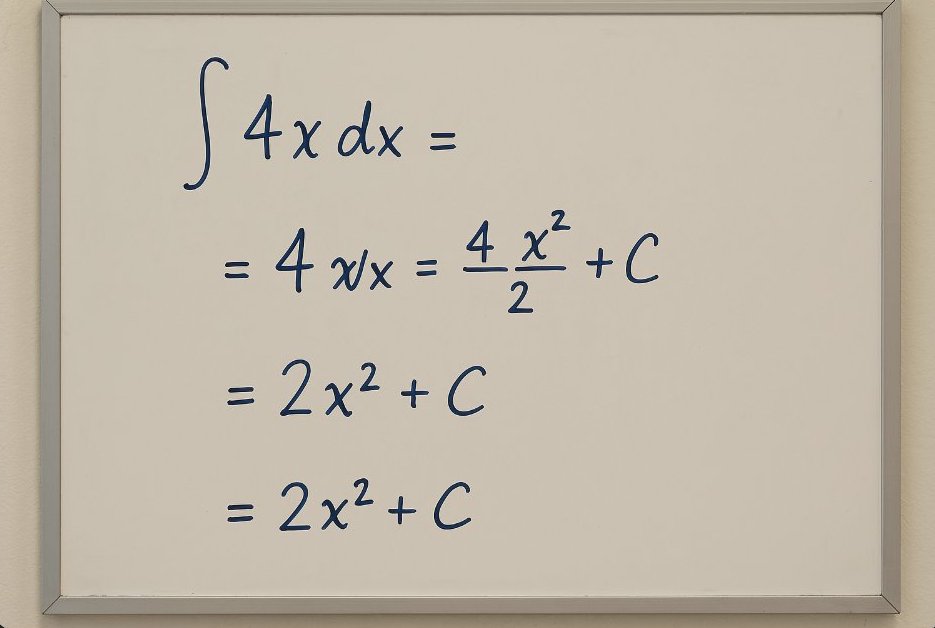 ∫ 4x dx =
= 4 x/x = 4 x²/2 + C
= 2x² + C
= 2x² + C